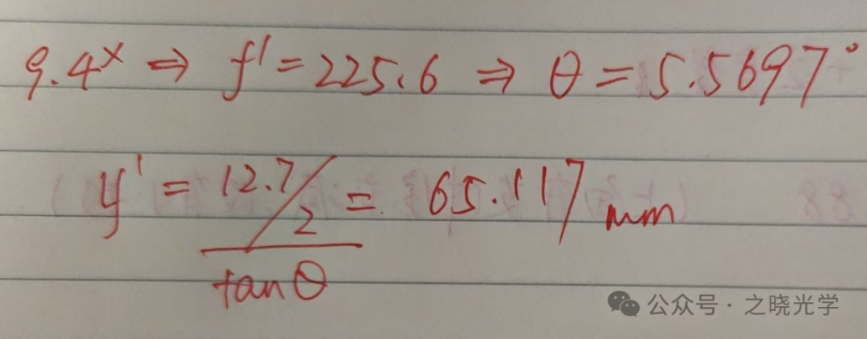 9.4ˣ ⇒ f' = 225.6 ⇒ θ = 5.5697°
y' = (12.7/2)/tanθ = 65.117 mm
公众号 · 之晓光学